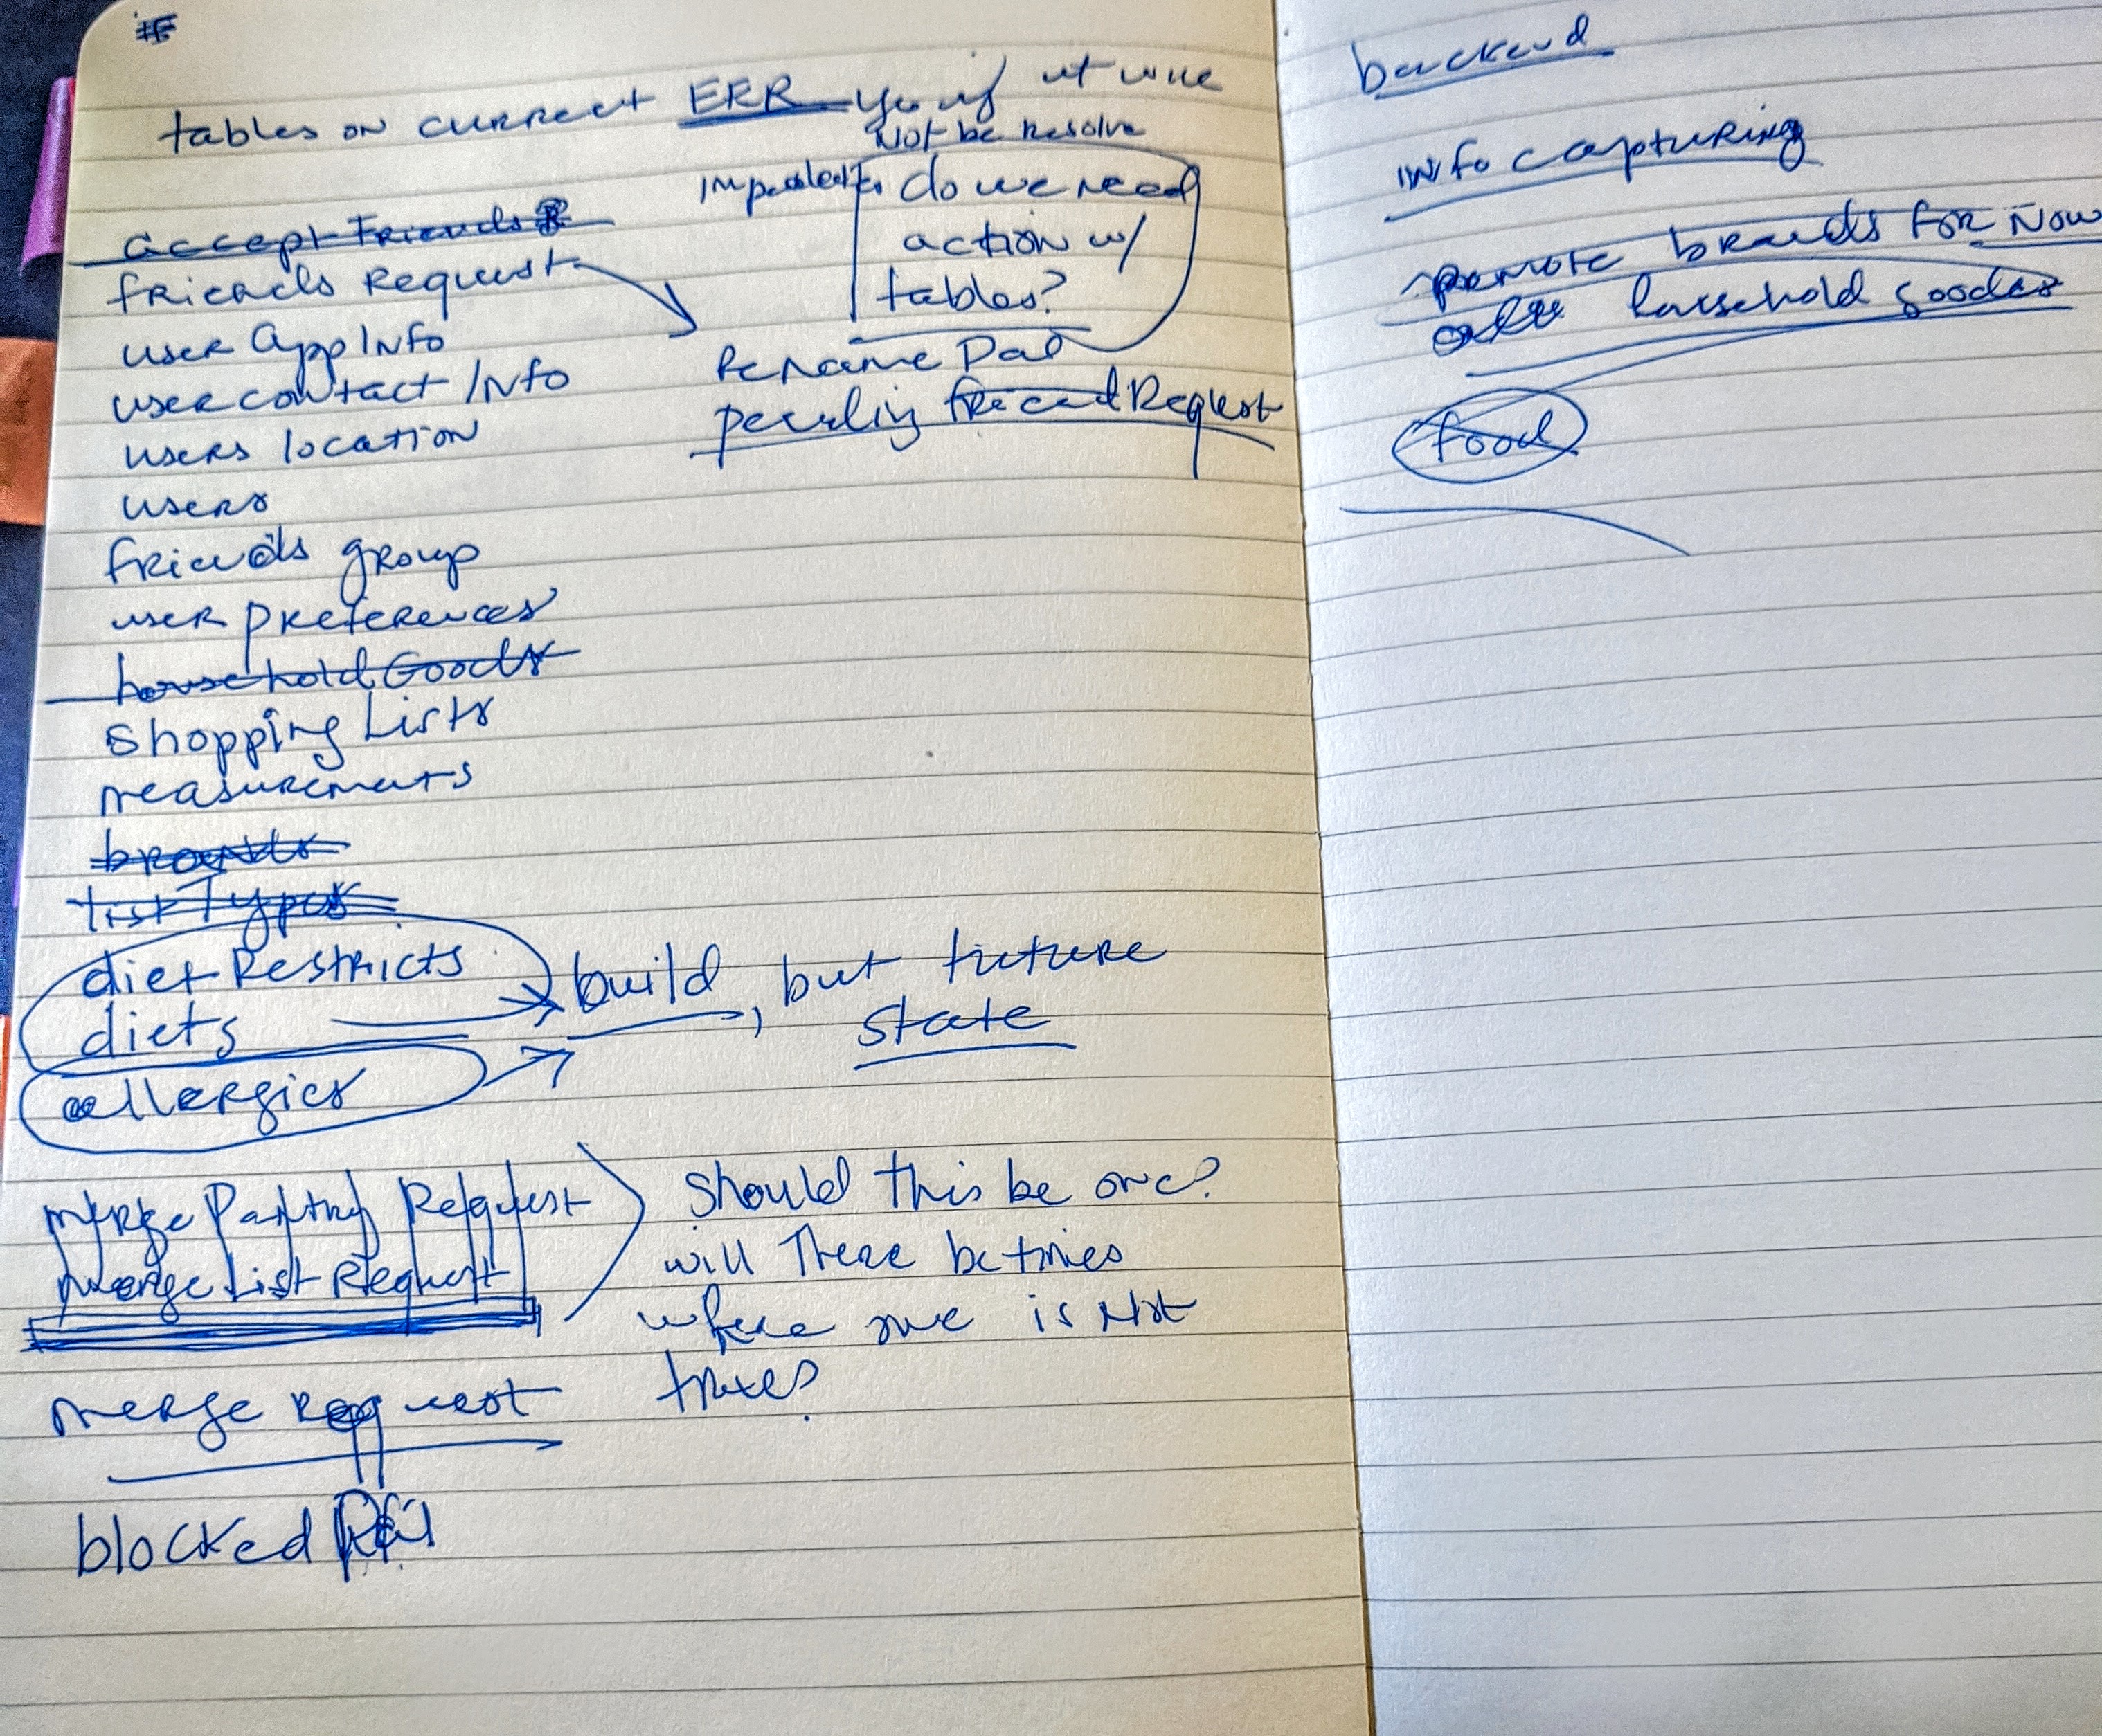 tables on current ERR yes if it will
Not be resolve
do we need
action w/
tables?
accept Friends
friends Request
user App Info
user contact Info
users location
users
friends group
user preferences
household Goods
Shopping Lists
measurements
brands
list Types
diet Restricts
diets
allergies
build, but future
state
Rename Pal
pending friend Request
merge Pantry Request
merge List Request
should this be one?
will There be times
where one is Not
true?
merge request
blocked
backend
info capturing
remove brands for Now
household goods
food